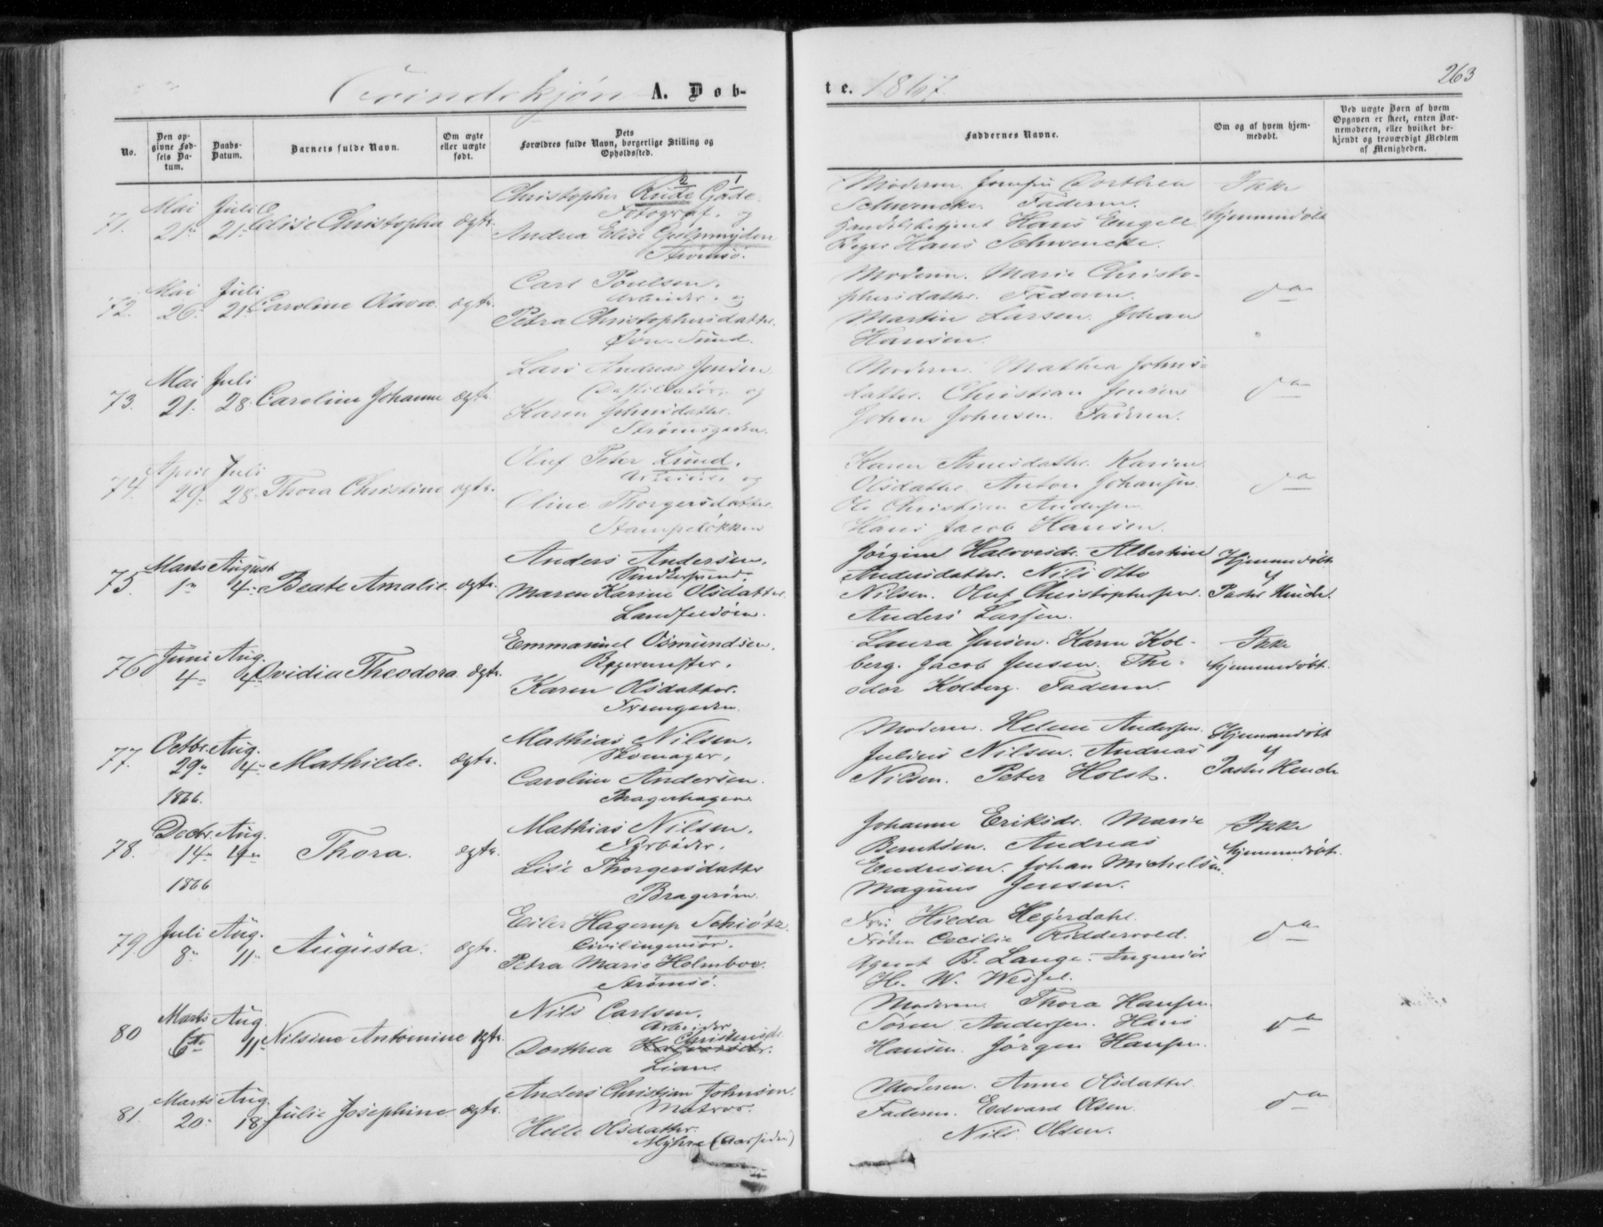 263
Qvindekjøn A. Døbte. 1867.
No.
Den opgivne Fødsels Datum.
Daabs-Datum.
Barnets fulde Navn.
Om ægte eller uægte født.
Dets Forældres fulde Navn, borgerlige Stilling og Opholdssted.
Faddernes Navne.
Om og af hvem hjemmedøbt.
Ved uægte Børn af hvem Opgaven er skeet, enten Barnemoderen, eller hvilket bekjendt og troværdigt Medlem af Menigheden.
71. Mai 21de Juli 21de Elise Christopha ægte.
Christopher Rude Gade
2 1
Fotograf. og
Andrea Elise Gjelmuyden
Strømsø.
Moderen. Josefin Dorthea
Schwencke. Faderen.
Handelsbetjent Hans Engelb.
Hans Schwencke.
Ikke
hjemmedøbt
72. Mai 26. Juli 21. Caroline Olava ægte.
Carl Poulsen.
Arbeider. og
Petra Christophersdatter.
Øvre-Sund.
Moderen. Marie Christo-
phersdatter. Faderen.
Martin Larsen. Johan
Hansen.
do
73. Mai 21. Juli 28. Caroline Johanne ægte
Lars Andreas Jensen
og
Karen Johnsdatter.
Strømsgaden.
Moderen. Mathea Johns-
datter. Christian Jensen
Johan Johnsen. Faderen.
do
74. April 29. Juli 28. Thora Christine ægte.
Oluf Peter Lund.
Arbeider. og
Oline Thorgersdatter.
Stampeløkken
Karen Arnesdatter. Karen
Olsdatter. Anton Johansen
Ole Christian Andersen
Hans Jacob Hansen.
do
75. Marts 1n August 4. Beate Amalie. ægte.
Anders Andersen.
Maren Karine Olsdatter
Landfaldøen.
Jørgine Halvorsdr. Albertine
Andersdatter. Nils Otto
Nilsen. Oluf Christophersen.
Anders Larsen.
Hjemmedøbt
af
Pastor Hende
76. Juni 4. Aug. 4. Ovidia Theodora. ægte.
Emmanuel Osmundsen.
Reppermester.
Karen Olsdatter.
Laura Jensen. Karen Kol-
berg. Jacob Jensen. The-
odor Kolberg. Faderen.
Ikke
hjemmedøbt.
77. Octbr. 29. 1866. Aug. 4. Mathilde. ægte.
Mathias Nilsen.
Skomager.
Caroline Andersen.
Bragerhagen.
Moderen. Helene Andersen
Julius Nilsen. Andreas
Nilsen. Peter Holst.
Hjemmedøbt
af
Pastor Hende
78. Decbr. 14. 1866 Aug. 4. Thora. ægte.
Mathias Nilsen.
Arbeider.
Lise Thorgersdatter
Bragerøen
Johanne Eriksdr. Marie
Berntsen. Andreas
Endresen. Johan Michelsen.
Magnus Jensen.
Ikke
hjemmedøbt.
79. Juli 8. Aug. 11. Augusta. ægte.
Eiler Hagerup Schiøtz.
Civilingeniør.
Petra Marie Holmboe.
Strømsø.
Fru Hilda Hegerdahl.
Frøken Cecilie Riddervold.
Agent B. Lange. Ingeniør
H. W. Wesel.
do
80 Marts 6te Aug 11. Nilsine Antomine ægte.
Nils Carlsen.
Arbeider.
Christensdr.
Dorthea Halvorsdr.
Lian.
Moderen. Thora Hansen
Søren Andersen. Hans
Hansen. Jørgen Hansen.
do
81. Marts 20. Aug. 18 Julie Josephine ægte.
Anders Christian Johnsen.
Matros.
Helle Olsdatter.
Myhre (Aarsiden)
Moderen. Anne Olsdatter
Faderen. Edvard Olsen.
Nils Olsen.
do